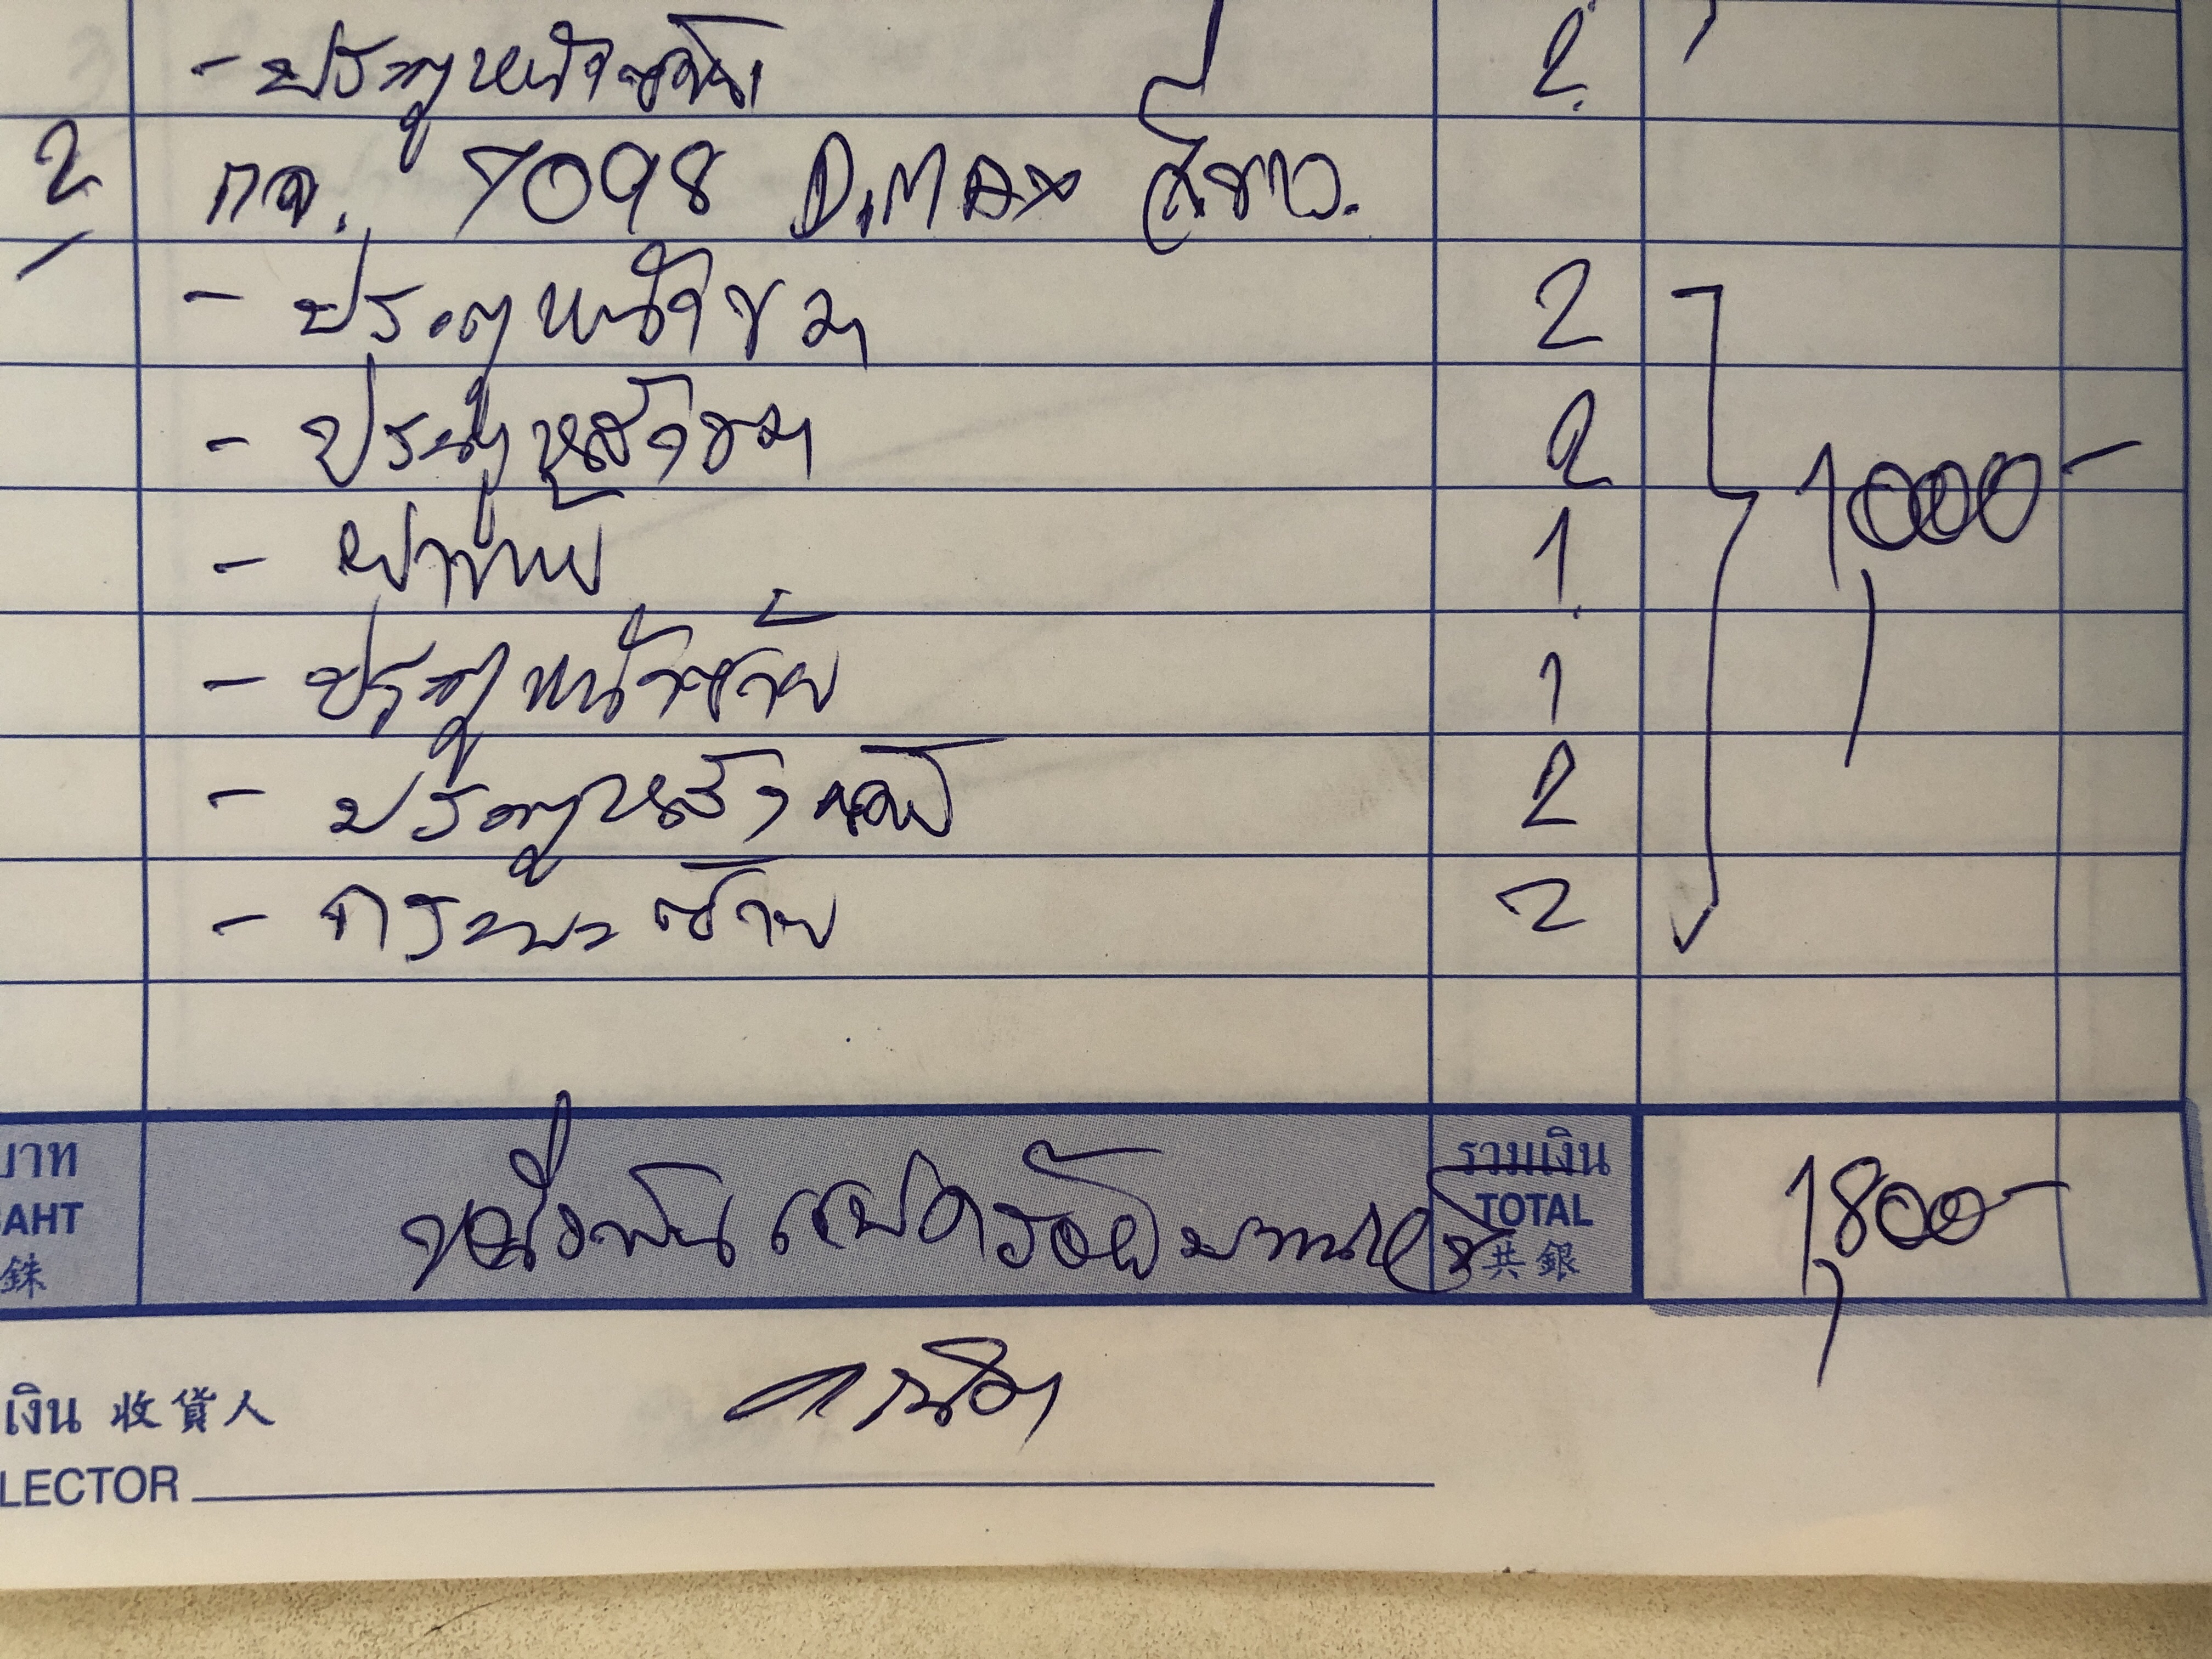 - ประตูหน้าซ้าย 2
2 กจ. 7098 D.MAX สีขาว.
- ประตูหน้าขวา 2
- ประตูหลังขวา 2
- ฝาท้าย 1
- ประตูหน้าซ้าย 1
- ประตูหลังซ้าย 2
- กระบะซ้าย 2
1,000-
บาท
BAHT
銖
หนึ่งพันแปดร้อยบาทถ้วน
รวมเงิน
TOTAL
共銀
1,800-
เงิน 收貨人
LECTOR